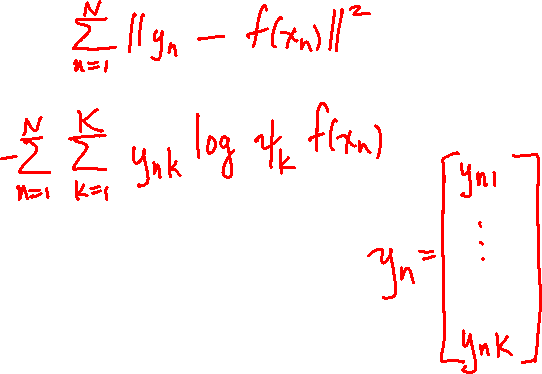 \sum_{n=1}^{N} \| y_n - f(x_n) \|^2
-\sum_{n=1}^{N} \sum_{k=1}^{K} y_{nk} \log \psi_k f(x_n)
y_n = \begin{bmatrix} y_{n1} \\ \vdots \\ y_{nK} \end{bmatrix}